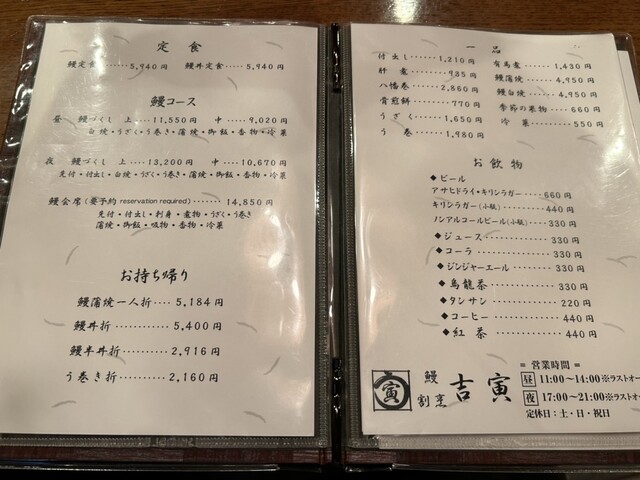 定食
鰻定食‥‥‥5,940円 鰻丼定食‥‥5,940円
鰻コース
昼 鰻づくし 上‥‥11,550円 中‥‥‥9,020円
白焼・うざく・う巻き・蒲焼・御飯・香物・冷菓
夜 鰻づくし 上‥‥13,200円 中‥‥10,670円
先付・付出し・白焼・うざく・う巻き・蒲焼・御飯・香物・冷菓
鰻会席(要予約 reservation required)‥‥‥14,850円
先付・付出し・刺身・煮物・うざく・う巻き
蒲焼・御飯・吸物・香物・冷菓
お持ち帰り
鰻蒲焼一人折‥‥5,184円
鰻丼折‥‥‥‥5,400円
鰻半丼折‥‥‥‥2,916円
う巻き折‥‥‥‥‥2,160円
一品
付出し‥‥‥1,210円
肝煮‥‥‥‥935円
八幡巻‥‥‥2,860円
骨煎餅‥‥‥‥770円
うざく‥‥‥1,650円
う巻‥‥‥‥1,980円
有馬煮‥‥‥‥1,430円
鰻蒲焼‥‥‥‥4,950円
鰻白焼‥‥‥‥4,950円
季節の果物‥‥660円
冷菓‥‥‥‥‥550円
お飲物
◆ビール
アサヒドライ・キリンラガー‥‥‥‥660円
キリンラガー(小瓶)‥‥‥‥‥440円
ノンアルコールビール(小瓶)‥‥‥‥330円
◆ジュース‥‥‥‥‥‥330円
◆コーラ‥‥‥‥‥‥‥330円
◆ジンジャーエール‥‥‥‥330円
◆烏龍茶‥‥‥‥‥‥‥330円
◆タンサン‥‥‥‥‥‥220円
◆コーヒー‥‥‥‥‥‥440円
◆紅茶‥‥‥‥‥‥‥‥440円
寅 鰻割烹 吉寅
= 営業時間 =
昼 11:00〜14:00※ラストオー
夜 17:00〜21:00※ラストオー
定休日:土・日・祝日